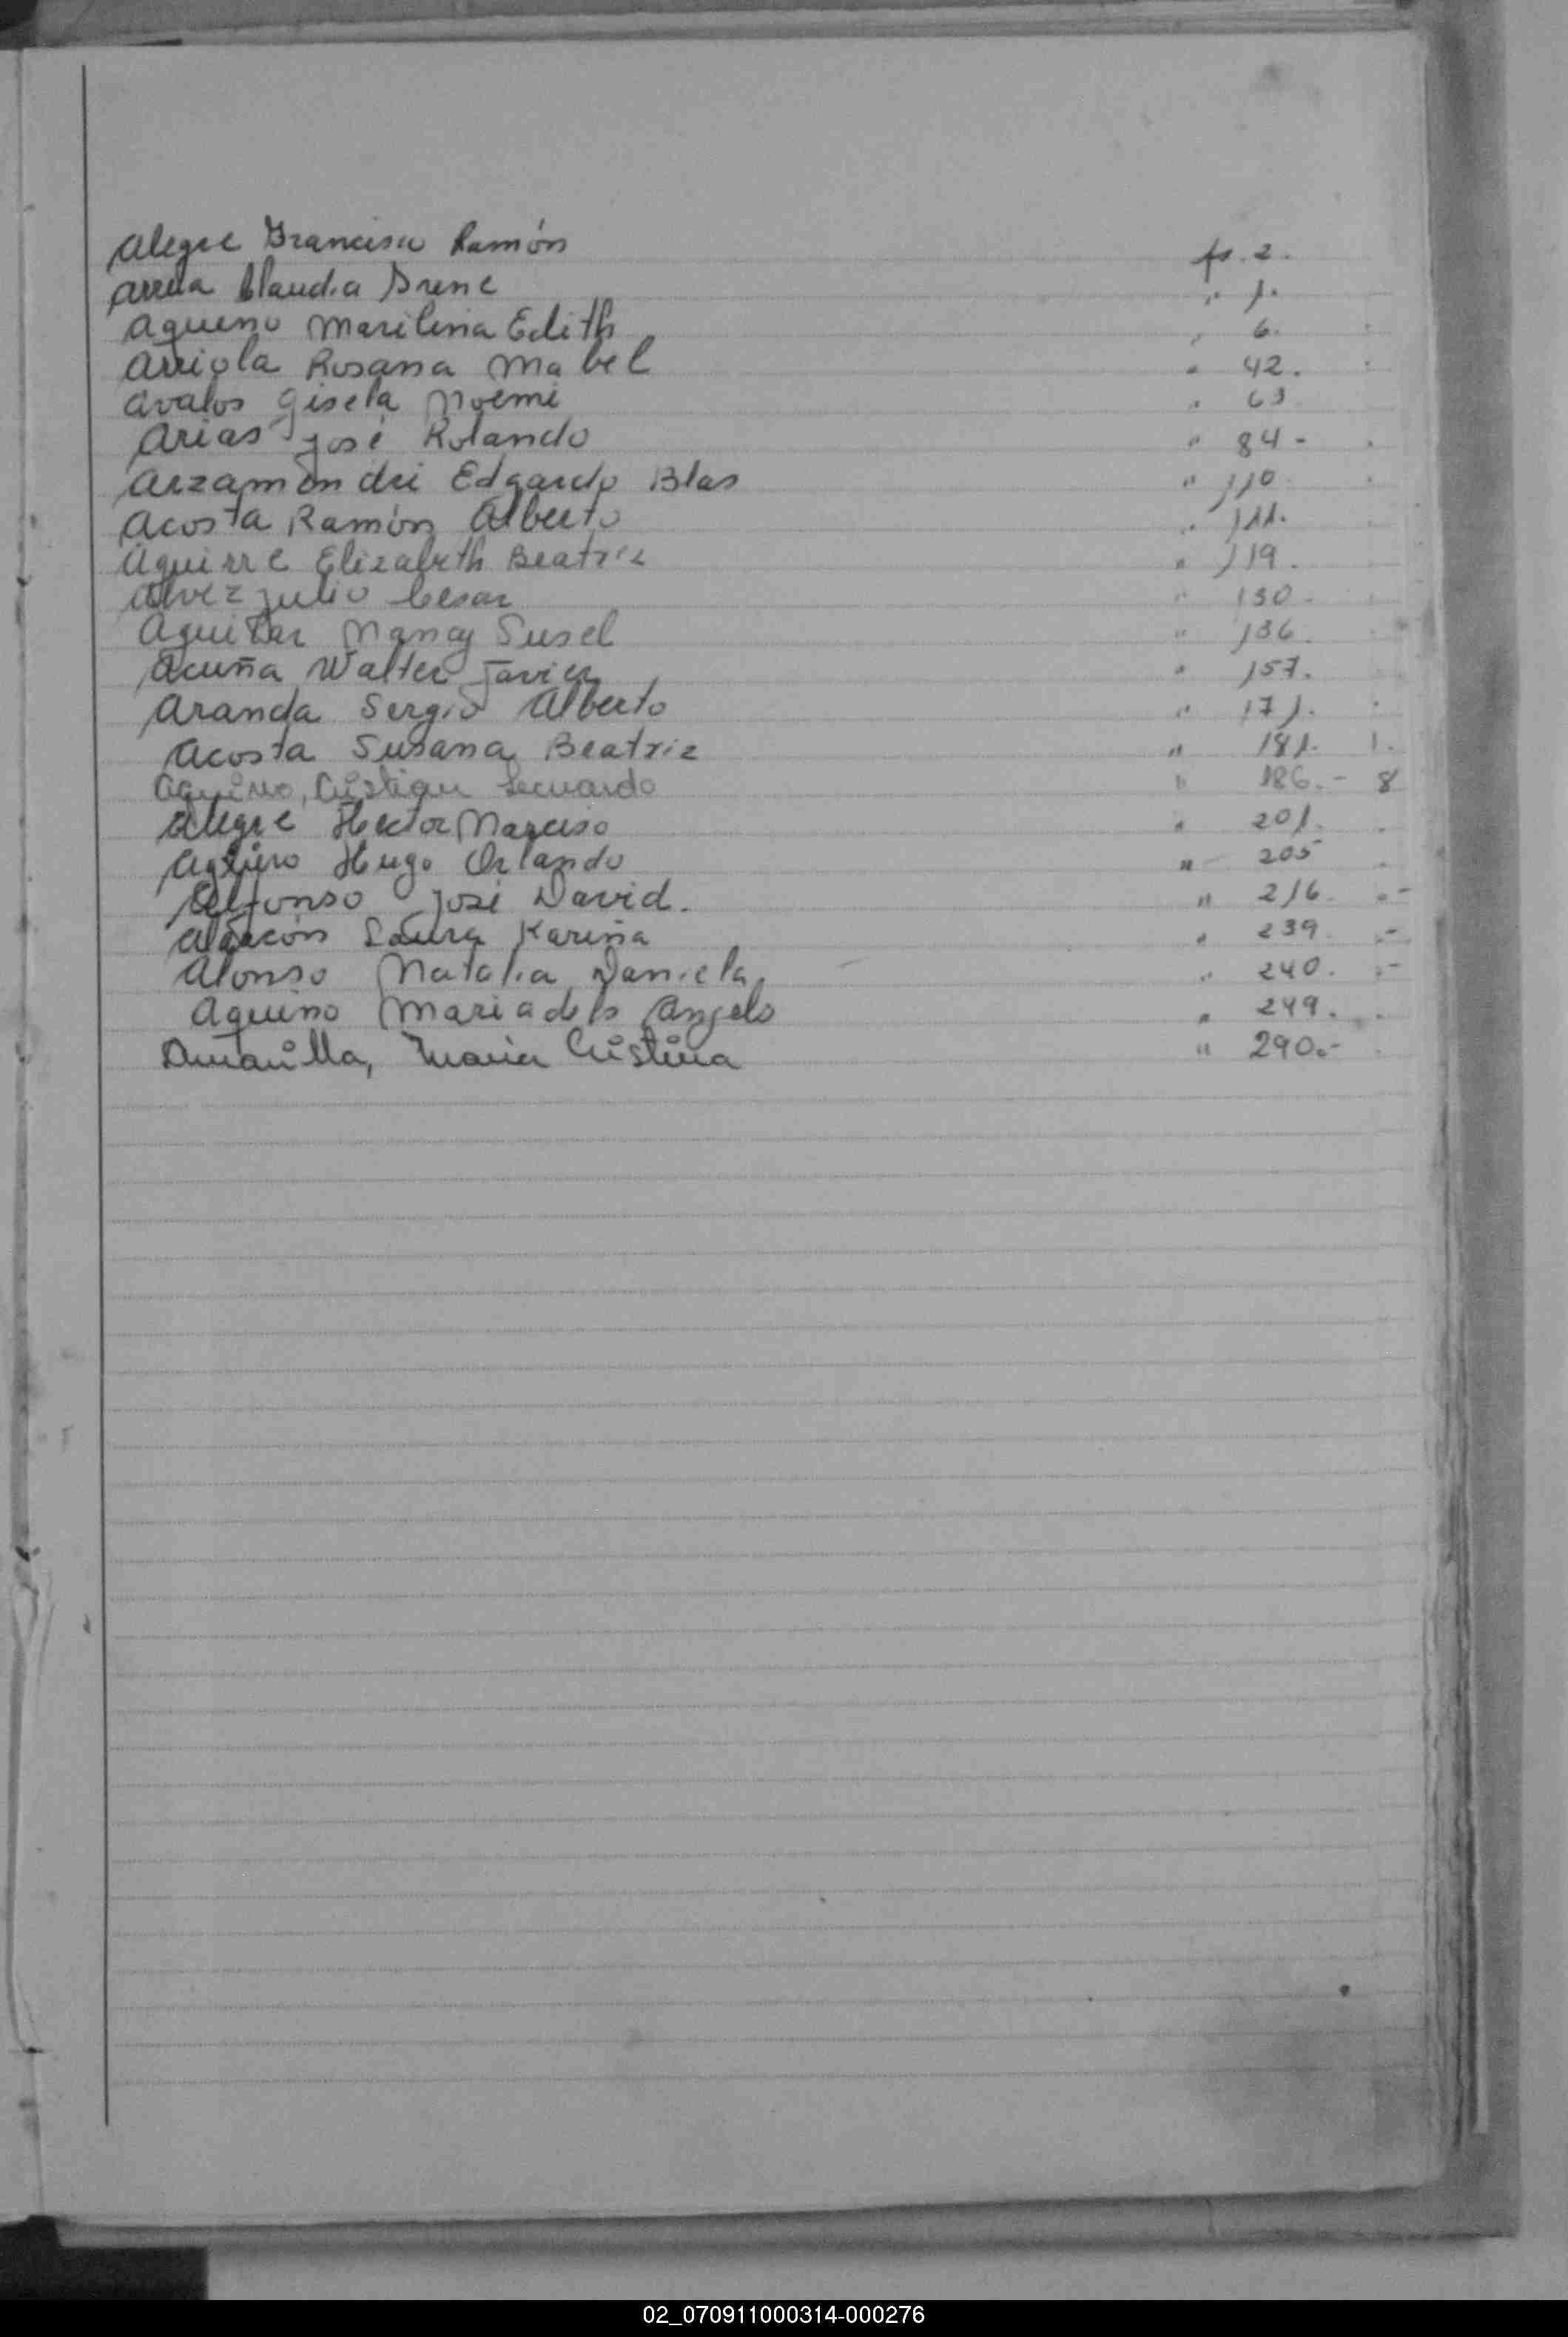 Alegre Francisco Ramón fs. 2.
Arrua Claudia Irene " 1.
Aquino Marilena Edith " 6.
Arriola Rosana Mabel " 42.
Avalos Gisela Noemi " 63
Arias José Rolando " 84 -
Arzamendri Edgardo Blas " 110
Acosta Ramón Alberto " 111.
Aguirre Elizabeth Beatriz " 119.
Alvez Julio Cesar " 130.
Aguilar Nancy Susel " 136.
Acuña Walter Javier " 157.
Aranda Sergio Alberto " 171.
Acosta Susana Beatriz " 181. 1.
Aquino, Cristian Leonardo " 186.- 8
Alegre Hector Narciso " 201.
Agüero Hugo Orlando " 205
Alfonso José David. " 216. .-
Alarcón Laura Karina " 239. .-
Alonso Natalia Daniela " 240. .-
Aquino Maria de ls Angels " 249.
Amarilla, Maria Cristina " 290.-
02_070911000314-000276